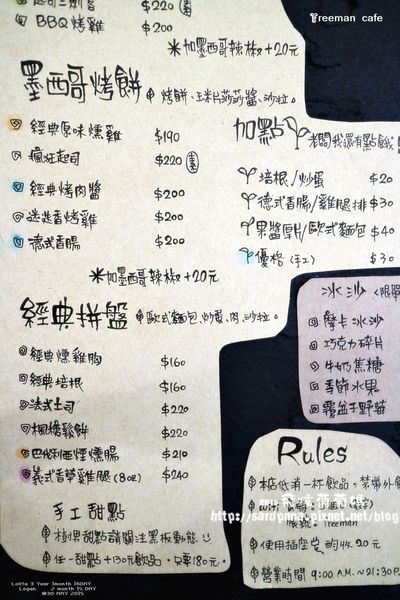 Treeman cafe
$220
BBQ烤雞 $200
*加墨西哥辣椒+20元
墨西哥烤餅 烤餅、玉米片莎莎醬、沙拉。
經典原味燻雞 $190
瘋狂起司 $220
經典烤肉醬 $200
迷迭香烤雞 $200
德式香腸 $200
*加墨西哥辣椒+20元
加點 老闆我還有點餓!
培根/炒蛋 $20
德式香腸/雞腿排 $30
果醬厚片/歐式麵包 $40
優格(手工) $30
經典拼盤 歐式麵包、炒蛋、肉、沙拉。
經典燻雞胸 $160
經典培根 $160
法式土司 $220
楓糖鬆餅 $220
巴伐利亞煙燻腸 $210
義式香草雞腿(8oz) $240
手工甜點
任一甜點+130元飲品,只要180元。
冰沙
摩卡冰沙
巧克力碎片
牛奶焦糖
季節水果
覆盆子野莓
Rules
本店低消一杯飲品,禁帶外
帳號:Treeman
使用插座
收20元
營業時間 9:00A.M.~21:30P.
http://sardonna.pixnet.net/blog
Lolita 3 Year 3month 16DAY
Logan 2 month 15 DAY
@30 MAY 2015